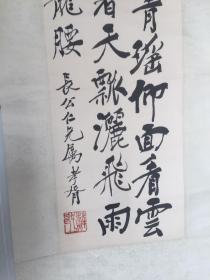 青瑶仰面看雲
看天瓢灑飛雨
龍腰
長公仁兄屬孝胥